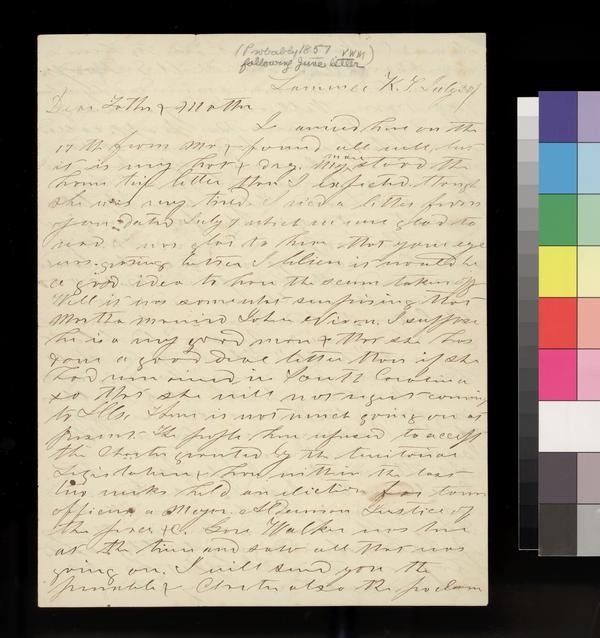 (Probably 1857 VWM)
following June letter
Lawrence K. T. July
Dear Father & Mother
I arrived here on the
17 th from Mo & found all well, but
it is very hot & dry. Mary stood the
home trip better than I expected though
she was very tired. I rec'd a letter from
you dated July 7 which we were glad to
read. I was glad to hear that your eye
was getting better I believe it would be
a good idea to have the scum taken off
Well it was somewhat surprising that
Martha married John Nixon. I suppose
he is a very good man & that she has
done a good deal better than if she
had remained in South Carolina
so that she will not regret coming
to Ills. There is not much going on at
present. The people have refused to accept
the Charter granted by the territorial
Legislature & have within the last
two weeks held an election for town
officers a Mayor, Alderman Justice of
the peace &c. Gov Walker was here
at the time and saw all that was
going on. I will send you the
preamble & Charter also the proclam